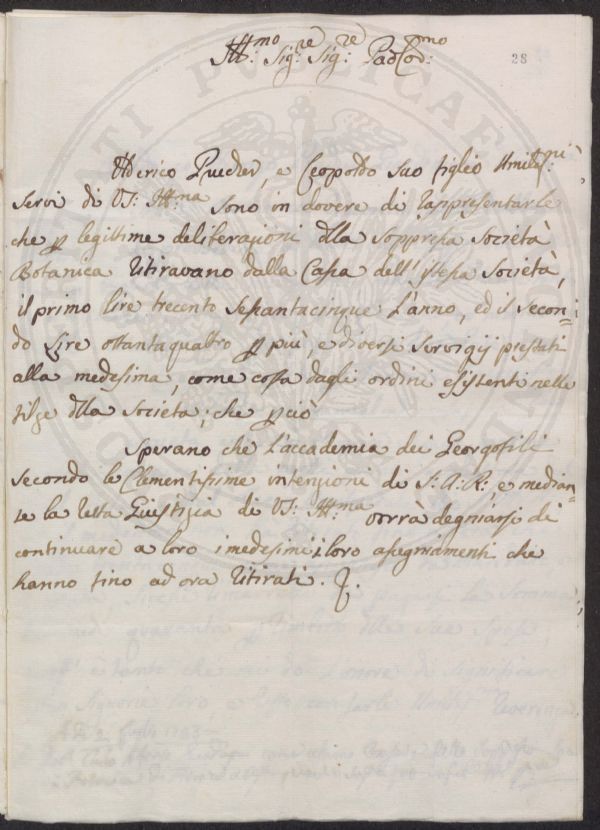 Ill:mo Sig:re Sig:re Pad: Col:mo
28
Ulderico Prucher, e Leopoldo suo figlio Umiliss:mi
servi di VS: Ill:ma sono in dovere di rappresentarle
che p legittime deliberazioni dlla soppressa Società
Botanica ritiravano dalla Cassa dell'istessa Società,
il primo lire trecento sessantacinque l'anno, ed il secon:
do Lire ottantaquattro p più, e diversi servigij prestati
alla medesima, come costa dagli ordini esistenti nelle
filze dlla Società; che pciò
Sperano che l'accademia dei Georgofili
secondo le Clementissime intenzioni di S: A: R:, e median=
te la retta Giustizia di VS: Ill:ma vorrà degniarsi di
continuare a loro i medesimi loro assegniamenti che
hanno fino ad ora ritirati.